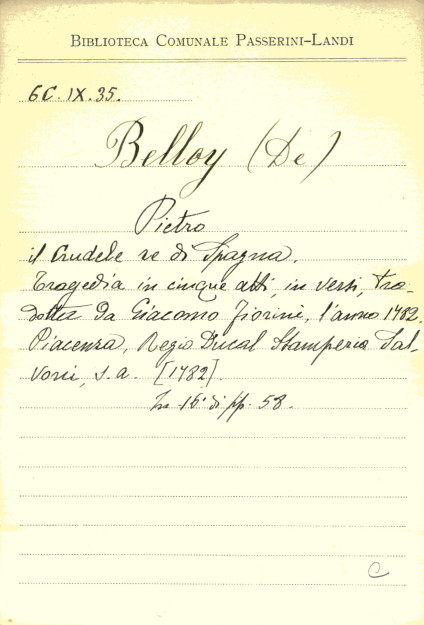 BIBLIOTECA COMUNALE PASSERINI-LANDI
6C.IX.35.
Belloy (De)
Pietro
il Crudele re di Spagna.
Tragedia in cinque atti, in versi, tra-
dotta da Giacomo Fiorini, l'anno 1782.
Piacenza, Regio Ducal Stamperia Sal-
voni, s.a. [1782].
In 16° di pp. 58.
C